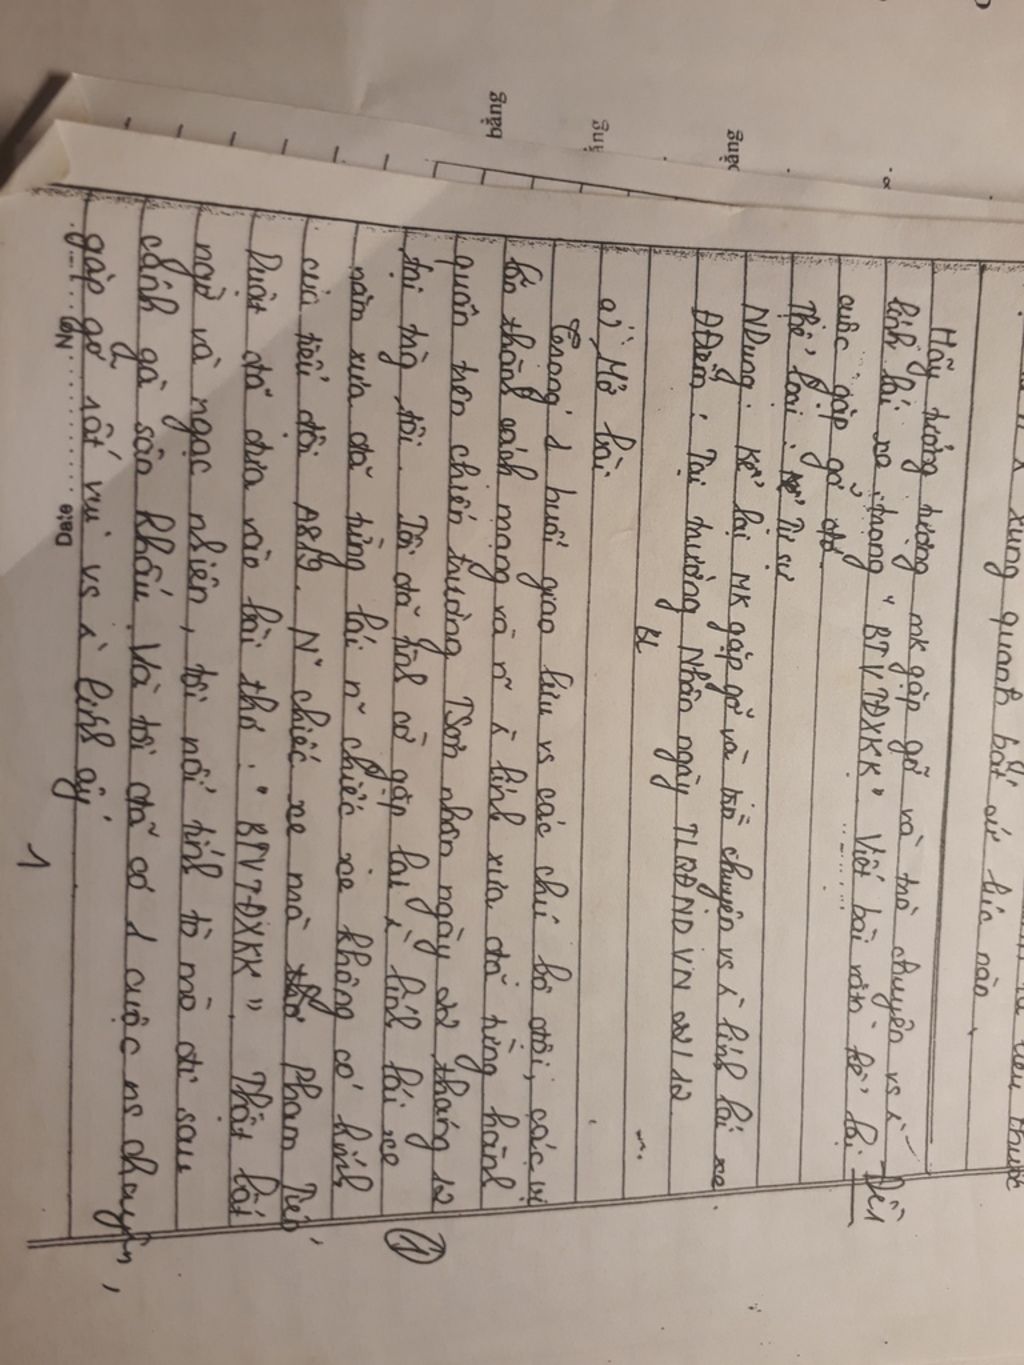 xung quanh bất cứ lúc nào.
Hãy tưởng tượng mk gặp gỡ và trò chuyện vs
lính lái xe trong "BTVTĐXKK" Viết bài văn kể lại
cuộc gặp gỡ đó
Thể loại: Tự sự
NDung: Kể lại MK gặp gỡ và trò chuyện vs lính lái xe.
ĐĐiểm: Tại trường Nhân ngày TLQĐND VN 22/12
a, Mở bài
Trong 1 buổi giao lưu vs các chú bộ đội, các vị
lão thành cách mạng và lính xưa đã từng hành
quân trên chiến trường TSơn nhân ngày 22 tháng 12
tại trg tôi. Tôi đã tình cờ gặp lại lính lái xe
năm xưa đã từng lái chiếc xe không có kính
của tiểu đội xe mà Phạm Tiến
Duật đã đưa vào bài thơ: "BTVTĐXKK". Thật bất
ngờ và ngạc nhiên, tôi nổi tính tò mò đi sau
cánh gà sân khấu. Và tôi đã có 1 cuộc ns chuyện,
gặp gỡ rất vui vs lính ấy
1
bằng
Date
No